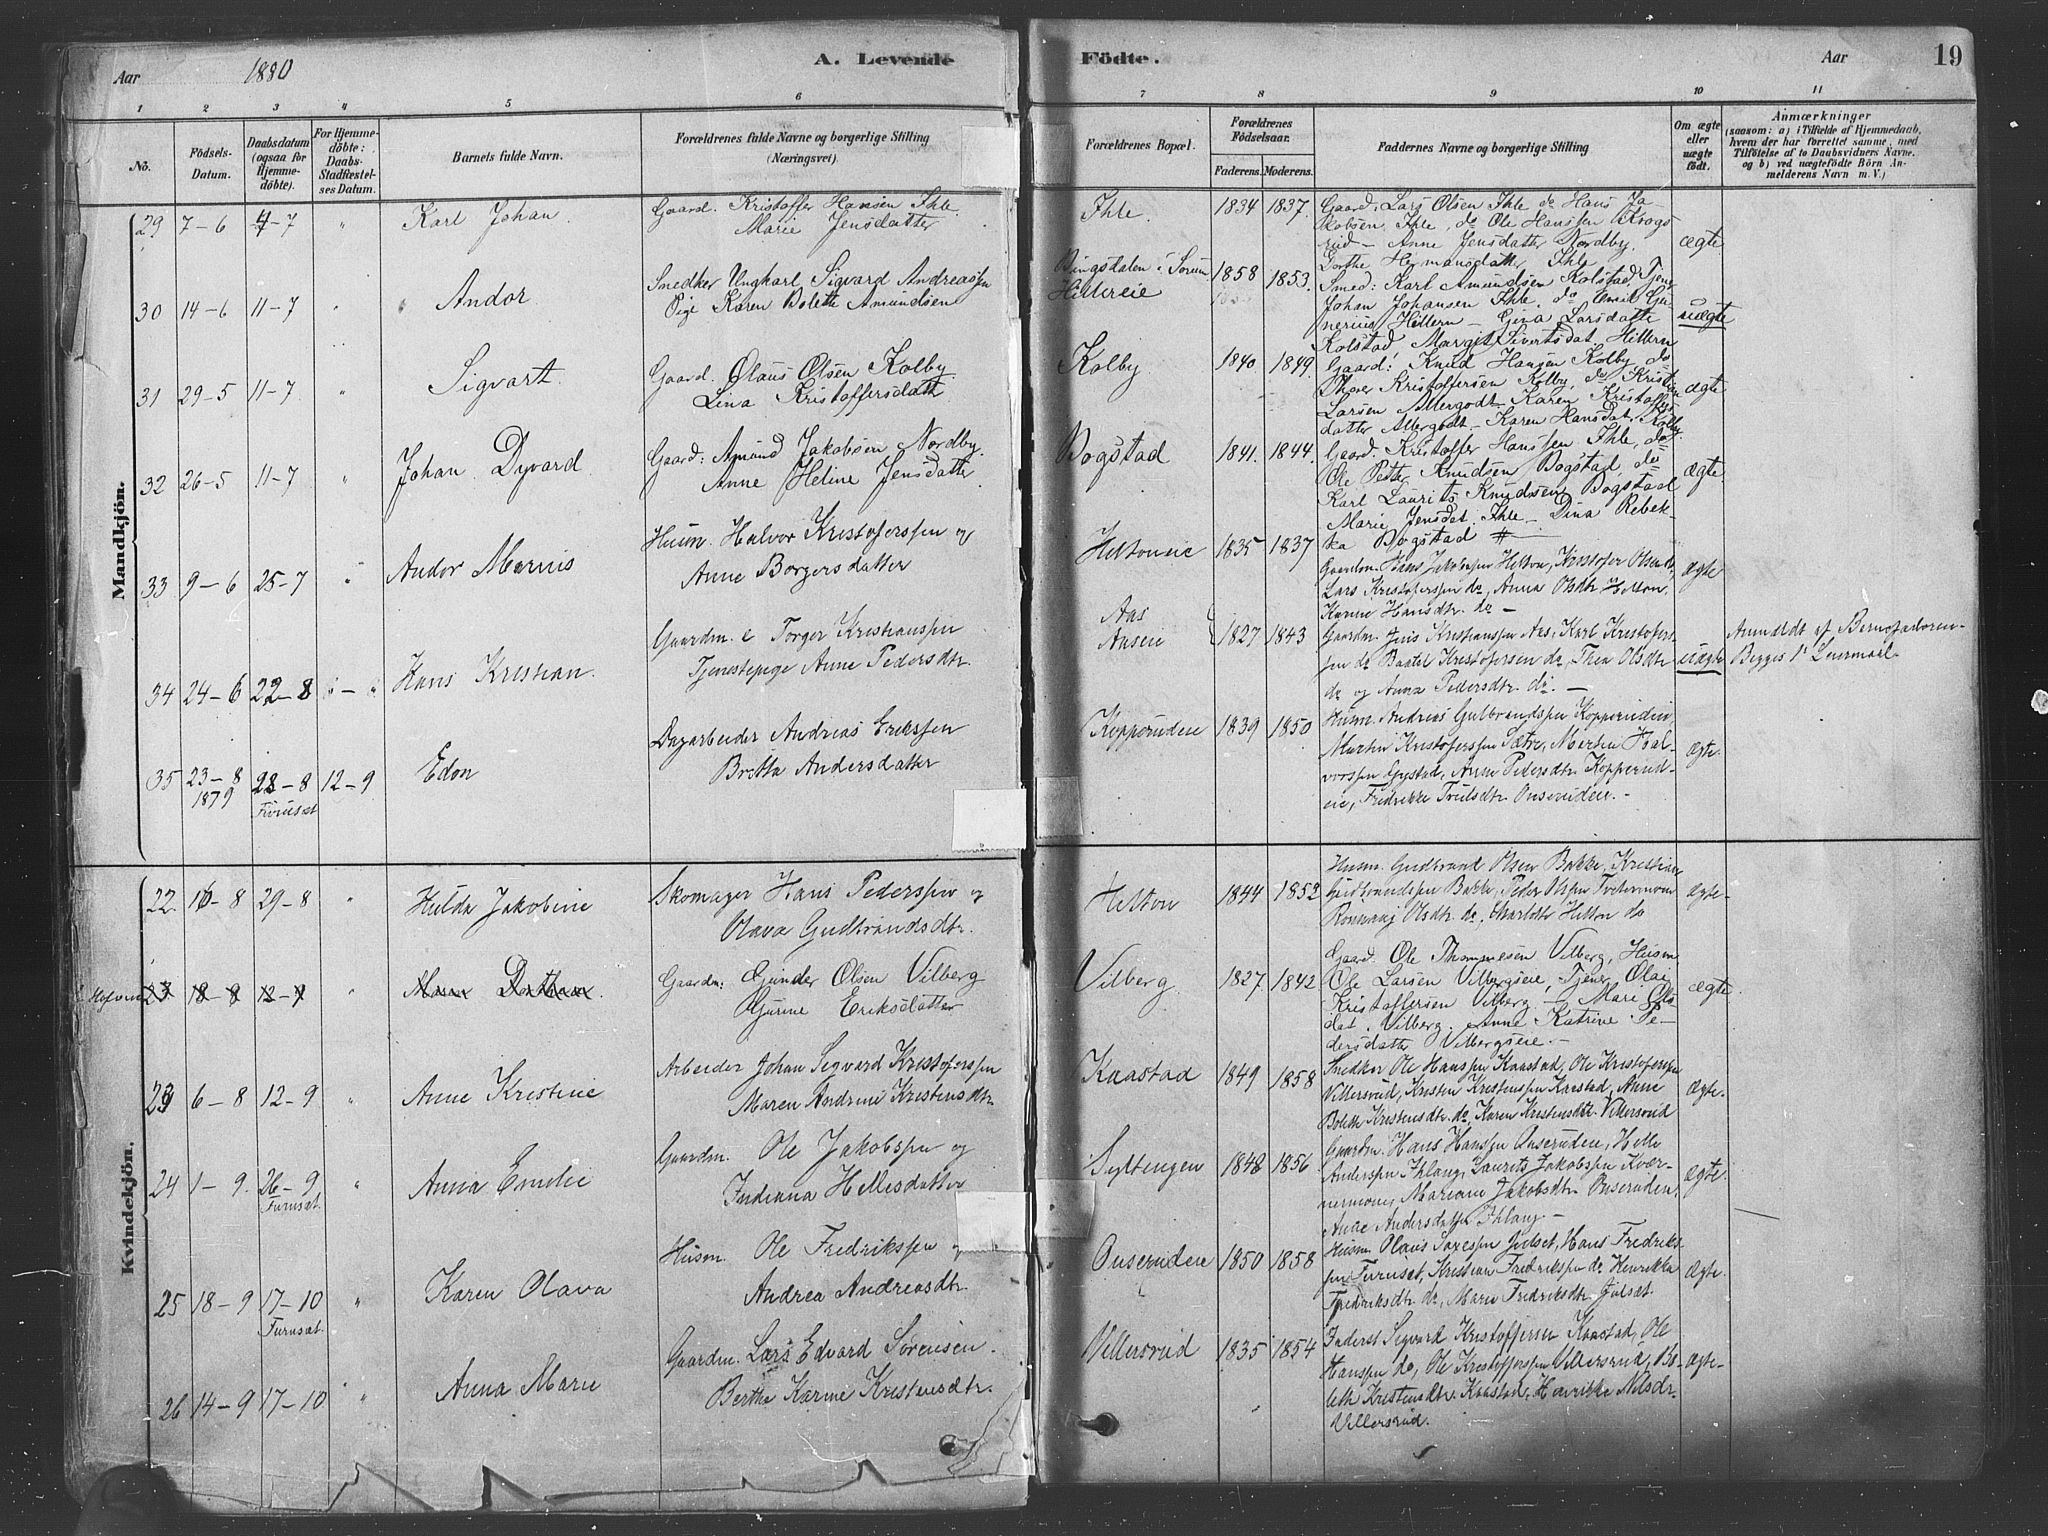 Aar 1880 A. Levende
Födte. Aar 19
1 2 3 " 5 6
7 8 9 10 11
No.
Födsels-Datum.
Daabsdatum (ogsaa for Hjemme-döbte).
For Hjemme-döbte: Daabs-Stadfæstel-ses Datum.
Barnets fulde Navn.
Forældrenes fulde Navne og borgerlige Stilling (Næringsvei).
Forældrenes Bopæl.
Forældrenes Födselsaar.
Faderens. Moderens.
Faddernes Navne og borgerlige Stilling
Om ægte eller uægte födt.
Anmærkninger
(saasom: a) i Tilfælde af Hjemmedaab,
hvem der har forrettet samme, med
Tilföielse af to Daabsvidners Navne,
og b) ved uægtefödte Börn An-
melderens Navn m. V.)
Mandkjön.
29 7-6 4-7 " Karl Johan. Gaard. Kristoffer Hansen Ihle.
Marie Jensdatter
Ihle. 1834 1837. Gaard. Lars Olsen Ihle do Hans Ja-
kobsen Ihle, do Ole Hanssen Krogs-
rud - Anne Jensdatter Nordby.
Gorthe Hermansdatter Ihle
ægte
30 14-6 11-7 " Andor Snedker Ungkarl Sigvard Andreassen
Pige Karen Bolette Amundsen
Bingsdalen i Sorum
Hillereie 1858 1853. Smed: Karl Amundsen Kolstad, Tjen
Johan Johansen Ihle, do Emil Gu-
nerius Hillern - Gina Larsdatte
Kolstad Margit Sivertsdat. Hillern
uægte
31 29-5 11-7 " Sigvart. Gaard. Olaus Olsen Kolby.
Lina Kristoffersdatt
Kolby 1840 1849. Gaard: Knud Hansen Kolby, do
Thore Kristoffersen Kolby, do Kristian
Larsen Allergodt - Karen Kristoffers
datter Allergodt - Karen Hansdat. Kolby.
ægte
32 26-5 11-7 " Johan Dyvard Gaard: Amund Jakobsen Nordby.
Anne Heline Jensdatter
Bogstad 1841. 1844. Gaard. Kristoffer Hanssen Ihle, do
Ole Petter Knudsen Bogstad, do
Karl Laurits Knudsen Bogstad
Marie Jensdat. Ihle - Dina Rebek-
ka Bogstad
ægte.
33 9-6 25-7 " Andor Marius Husm. Halvor Kristoferssen og
Anne Borgersdatter
Heltoneie 1835 1837 Gaardm. Hans Jakobssen Helton, Kristofer Olsen do,
Lars Kristoferssen do, Anna Olsdtr Helton,
Karine Hansdtr. do -
ægte
34 24-6 22-8 " - " Hans Kristian. Gaardm. e Torger Kristianssen
Tjenestepige Anne Pedersdtr.
Aas
Aaseie 1827 1843 Gaardm. Jens Kristianssen Aas, Karl Kristofers-
sen do Baatel Kristofersen do, Thea Olsdtr
do og Anna Pedersdtr. do. -
uægte Anmeldt af Barnefaderen -
Begges 1ste Leiermaal.
35 23-8
1879 28-8
Furuset 12-9 Edon Dagarbeider Andreas Erikssen
Bretta Andersdatter
Kopperudeie 1839 1850 Husm. Andreas Gulbrandssen Kopperudeie,
Martin Kristoferssen Sætre, Martin Hal-
vorssen Gystad, Anne Pedersdtr Kopperud-
eie, Fredrikke Trulsdtr Onserudeie. -
ægte.
Kvindekjön.
22. 16-8 29-8 " Hulda Jakobine Skomager Hans Pederssen og
Olava Gudbrandsdtr.
Helton 1844 1853 Husm. Gudbrand Olsen Bakke, Kristian
Gudbrandssen Bakke, Peder Olssen
Olsdtr. do, Charlotte Helton do
ægte -
23 18-8 12-9 " Gaardm: Gunder Olsen Vilberg
Gurine Eriksdatter
Vilberg 1827 1842 Gaard. Ole Thommesen Vilberg, Husm
Ole Larsen Vilbergseie, Tjener Olai
Kristoffersen Vilberg - Mari Ols-
dat. Vilberg. Anne Katrine Pe-
dersdatter Vilbergseie. -
ægte.
23 6-8 12-9 " Anne Kristine Arbeider Johan Segvard Kristoferssen
Maren Andrine Kristensdtr.
Kaastad 1849 1858 Snedker Ole Hanssen Kaastad, Ole Kristoferssen
Villersrud, Kristen Kristenssen Kaastad, Anne
Bolette Kristensdtr. do, Karen Kristensdtr. Villersrud
ægte.
24 1-9. 26-9
Furuset. " Anna Emilie Gaardm. Ole Jakobssen og
Indiana Hellesdatter
Syltengen 1848 1856 Gaardm. Hans Hanssen Onserudeie, Helle
Anderssen Ihlang, Laurits Jakobssen Kvær-
nermoen, Mariane Jakobsdtr. Onseruden,
Anne Andersdatter Ihlang -
ægte.
25 18-9 17-10
Furuset. " Karen Olava Husm. Ole Fredrikssen og
Andrea Andreasdtr.
Onserudeie 1850 1858 Husm Olaus Saxessen Julset, Hans Fredriks-
sen Furuset, Kristian Fredrikssen do Henrikka
Fredriksdtr. do, Marie Fredriksdtr. Julset.
ægte.
26 14-9 17-10 " Anna Marie Gaardm. Lars Edvard Sørensen.
Berthe Karine Kristensdtr.
Villersrud 1835 1854 Inderst Segvard Kristoffersen Kaastad, Ole
Hanssen do, Ole Kristofferssen Villersrud, Bo-
lette Kristensdtr. Kaastad, Henrikke Nilsdr.
Villersrud.
ægte -